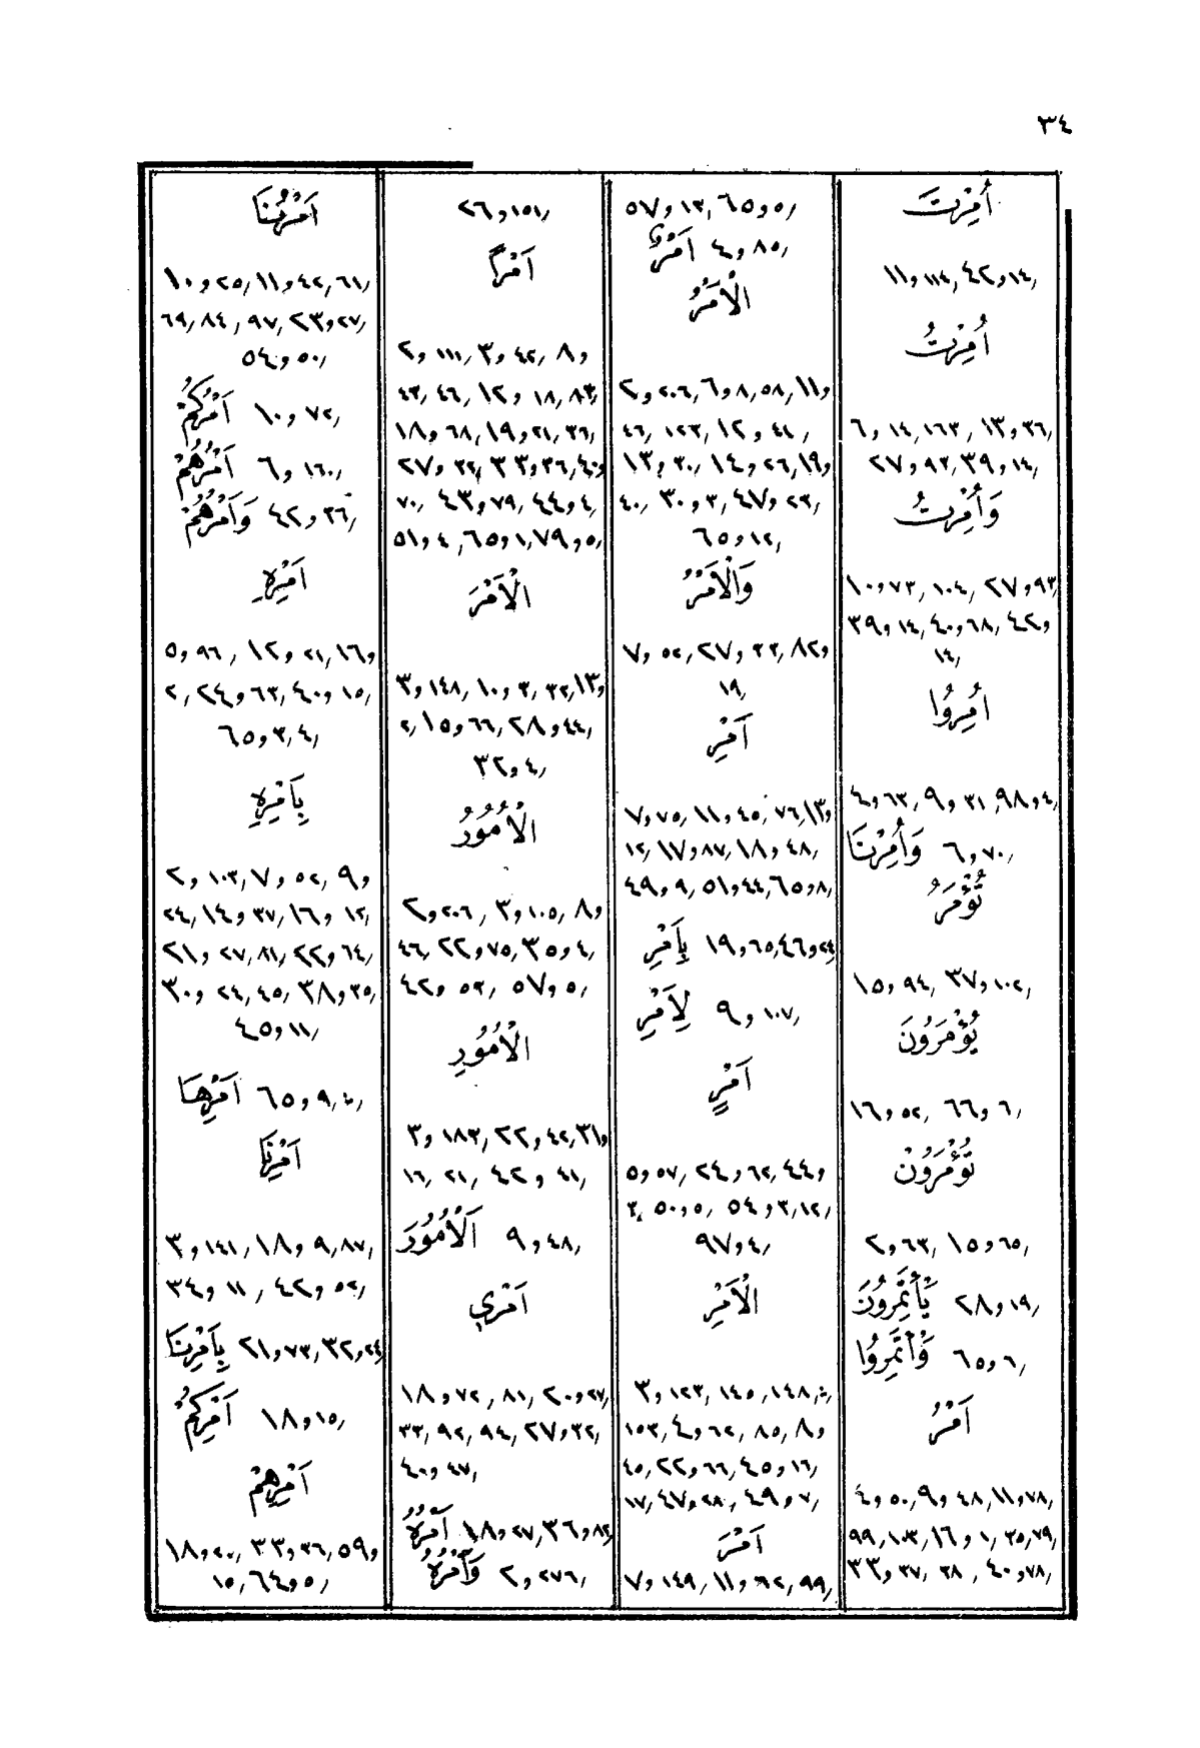 ٣٤
أُمِرْتَ
١١و١١٤, ٤٢و١٤,
أُمِرْتُ
٦و١٤, ١٦٣, ١٣و٣٦,
٢٧و٩٢, ٣٩و١٤,
وَأُمِرْتُ
١٠و٧٣, ١٠٤, ٢٧و٩٣,
٣٩و١٤, ٤٠و٦٨, ٤٢و
١٤,
أُمِرُوا
٤و٦٣, ٩و٣١, ٩٨و٤,
٦و٧٠, وَأُمِرْنَا
تُؤْمَرُ
١٥و٩٤, ٣٧و١٠٢,
يُؤْمَرُونَ
١٦و٥٢, ٦٦و٦,
تُؤْمَرُونَ
٢و٦٣, ١٥و٦٥,
٢٨و١٩, يَأْتَمِرُونَ
٦٥و٦, وَأْتَمِرُوا
اَمْرُ
٤و٥٠, ٩و٤٨, ١١و٧٨,
٩٩, ١٠٣, ١٦و١, ٣٥, ٧٩,
٣٣و٣٧, ٣٨, ٤٠و٧٨,
٥٧و١٣, ٦٥و٥,
٤و٨٥, اَمْرٌ
الْاَمْرُ
٢و٢٠٦, ٦و٨, ٥٨, ١١و
٤٦, ١٢٣, ١٢و٤١,
١٣و٣٠, ١٤و٢٦, ١٩و
٤٠, ٣٠و٣, ٤٧و٢٣,
٦٥و١٢,
وَالْاَمْرُ
٧و٥٢, ٢٧و٣٣, ٨٢و
١٩,
اَمْرِ
٧و٧٥, ١١و٤٥, ٧٦, ١٣و
١٢, ١٧و٨٧, ١٨و٤٨,
٤٩و٩, ٥١و٤٤, ٦٥و٨,
١٩و٦٥, ٤٦و٢٤, بِاَمْرِ
٩و١٠٧, لِاَمْرِ
اَمْرٍ
٥و٥٧, ٢٤و٦٢, ٤٤و
٣, ٥٠و٥, ٥٤و٣, ١٢,
٩٧و٤,
الْاَمْرِ
٣و١٢٣, ١٤٥, ١٤٨,
١٥٣, ٤و٦٢, ٨٥, ٨و
٤٥, ٢٢و٦٦, ٤٥و١٦,
١٧, ٤٧و٢٨, ٤٩و٧,
اَمْرَ
٧و١٤٩, ١١و٦٢, ٩٩,
٢٦و١٥١,
اَمْرًا
٢و١١١, ٣و٤٢, ٨و
٤٣, ٤٦, ١٢و١٨, ٨٣,
١٨و٦٨, ١٩و٢١, ٣٦,
٢٧و٣٢, ٣٣و٣٦, ٤٠و
٧٠, ٤٣و٧٩, ٤٤و٤,
٥١و٤, ٦٥و١, ٧٩و٥,
الْاَمْرَ
٣و١٤٨, ١٠و٣, ٣٢, ١٣و
٢, ١٥و٦٦, ٢٨و٤٤,
٣٢و٤,
الْاُمُورُ
٢و٢٠٦, ٣و١٠٥, ٨و
٤٦, ٢٢و٧٥, ٣٥و٤,
٤٢و٥٣, ٥٧و٥,
الْاُمُورِ
٣و١٨٣, ٢٢و٤٢, ٣١و
١٦, ٢١, ٤٢و٤١,
٩و٤٨, اَلْاُمُورَ
اَمْرِي
١٨و٧٢, ٨١, ٢٠و٢٧,
٣٣, ٩٢, ٩٤, ٢٧و٣٢,
٤٠و٤٧,
١٨و٢٧, ٣٦و٨٢, اَمْرُهُ
٢و٢٧٦, وَاَمْرُهُ
اَمْرُنَا
١٠و٢٥, ١١و٤٢, ٦١,
٦٩, ٨٤, ٩٧, ٢٣و٢٧,
٥٤و٥٠,
١٠و٧٢, اَمْرُكُمْ
٦و١٦٠, اَمْرُهُمْ
٤٢و٣٦, وَاَمْرُهُمْ
اَمْرِهِ
٥و٩٦, ١٢و٢١, ١٦و
٢, ٢٤و٦٣, ٤٠و١٥,
٦٥و٣, ٤,
بِاَمْرِهِ
٢و١٠٣, ٧و٥٢, ٩و
٢٤, ١٤و٣٧, ١٦و١٢,
٢١و٢٧, ٨١, ٢٢و٦٤,
٣٠و٢٤, ٤٥, ٣٨و٣٥,
٤٥و١١,
٦٥و٩, اَمْرِهَا
اَمْرِنَا
٣و١٤١, ١٨و٩, ٨٧,
٣٤و١١, ٤٢و٥٢,
٢١و٧٣, ٣٢و٢٤, بِاَمْرِنَا
١٨و١٥, اَمْرِكُمْ
اَمْرِهِمْ
١٨و٢٠, ٣٣و٣٦, ٥٩و
١٥, ٦٤و٥,